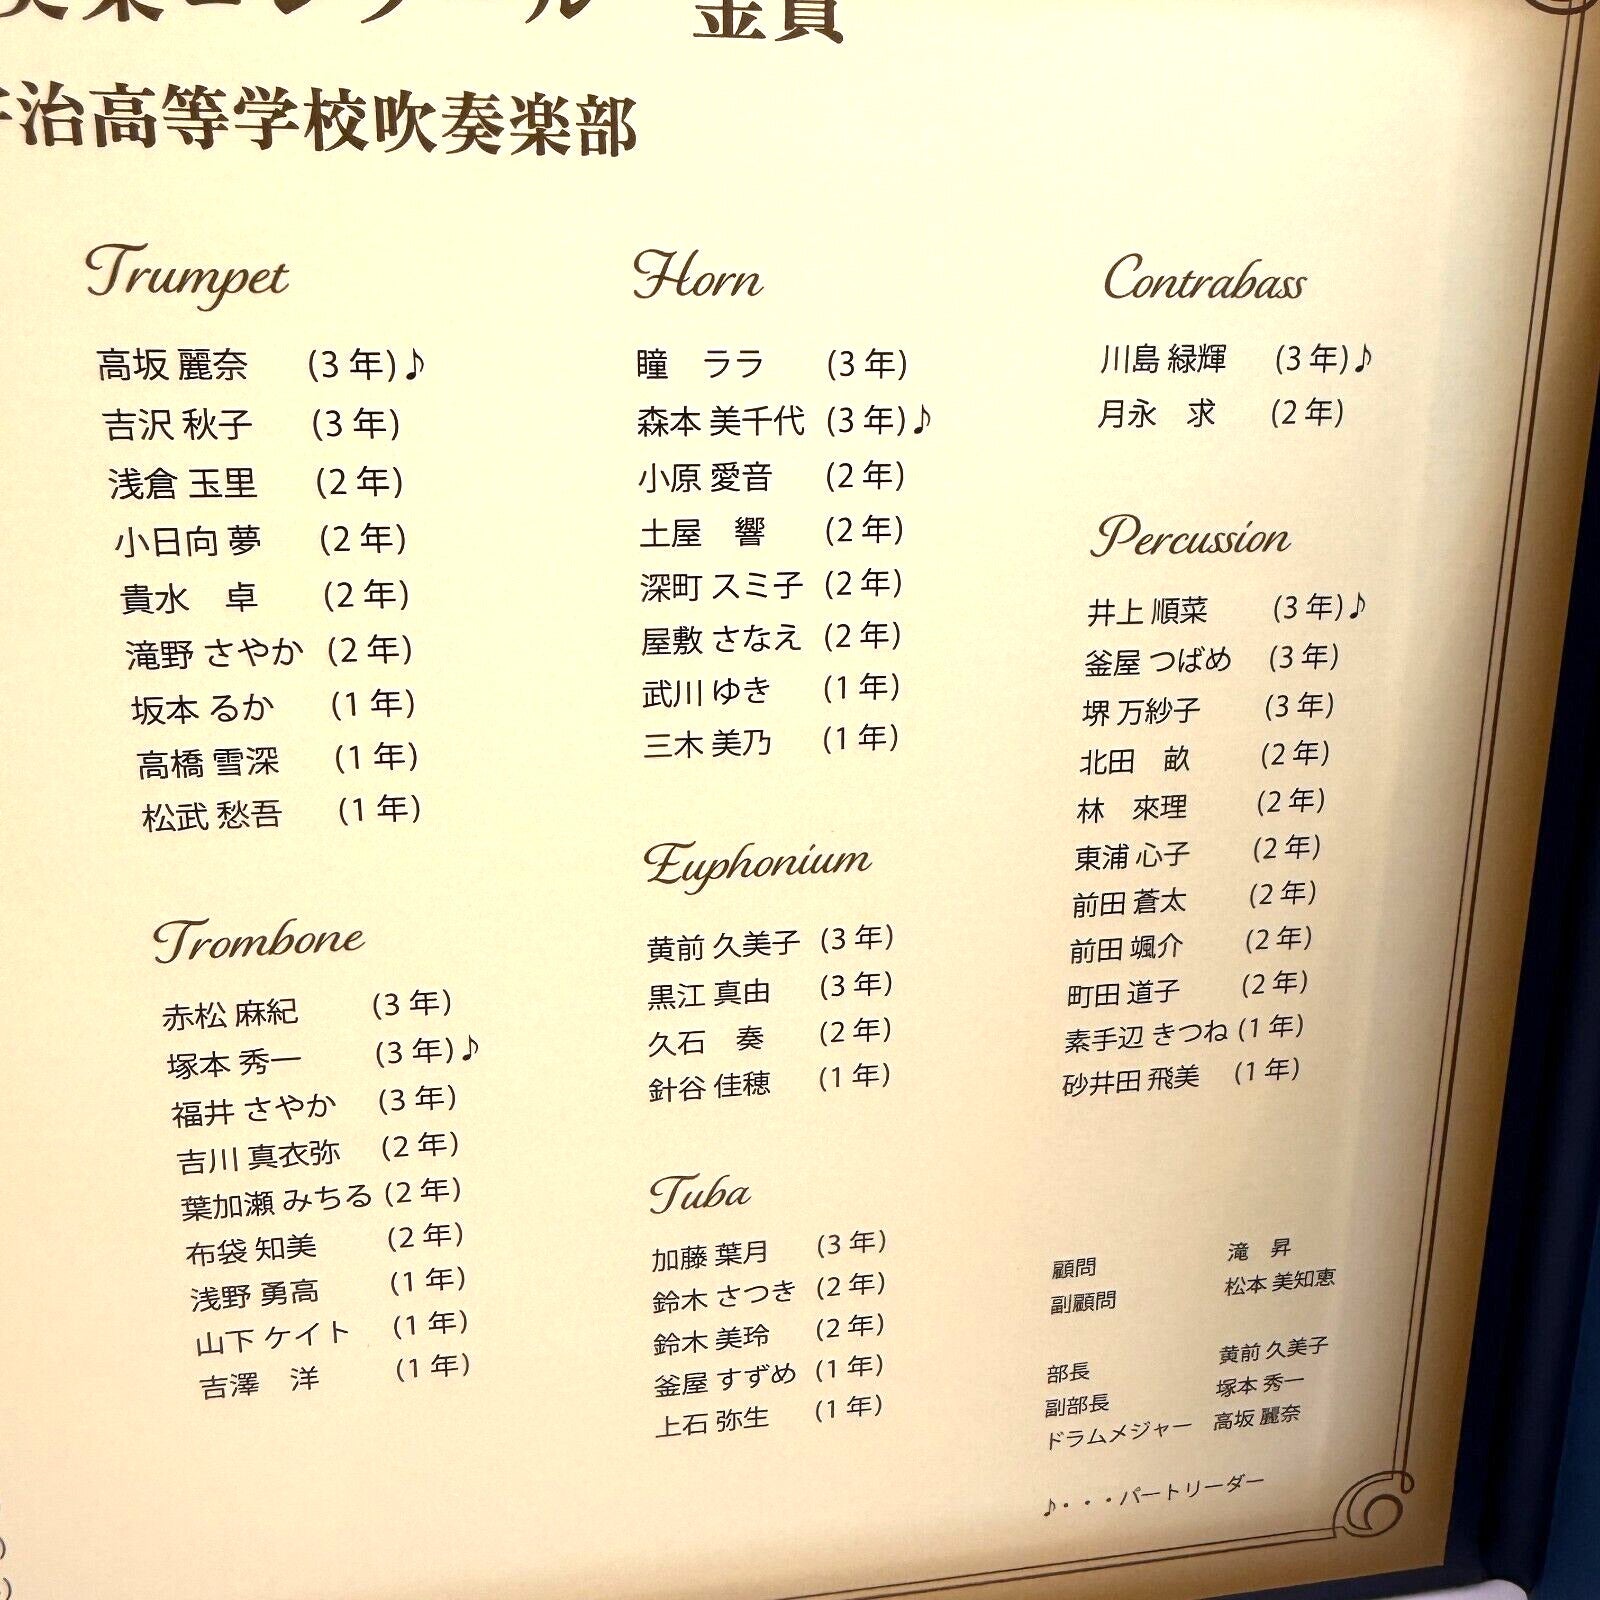 奏楽コンクール 金賞
治高等学校吹奏楽部
Trumpet
高坂 麗奈 (3 年)♪
吉沢 秋子 (3 年)
浅倉 玉里 (2 年)
小日向 夢 (2 年)
貴水 卓 (2 年)
滝野 さやか (2 年)
坂本 るか (1 年)
高橋 雪深 (1 年)
松武 愁吾 (1 年)
Trombone
赤松 麻紀 (3 年)
塚本 秀一 (3 年)♪
福井 さやか (3 年)
吉川 真衣弥 (2 年)
葉加瀬 みちる (2 年)
布袋 知美 (2 年)
浅野 勇高 (1 年)
山下 ケイト (1 年)
吉澤 洋 (1 年)
Horn
瞳 ララ (3 年)
森本 美千代 (3 年)♪
小原 愛音 (2 年)
土屋 響 (2 年)
深町 スミ子 (2 年)
屋敷 さなえ (2 年)
武川 ゆき (1 年)
三木 美乃 (1 年)
Euphonium
黄前 久美子 (3 年)
黒江 真由 (3 年)
久石 奏 (2 年)
針谷 佳穂 (1 年)
Tuba
加藤 葉月 (3 年)
鈴木 さつき (2 年)
鈴木 美玲 (2 年)
釜屋 すずめ (1 年)
上石 弥生 (1 年)
Contrabass
川島 緑輝 (3 年)♪
月永 求 (2 年)
Percussion
井上 順菜 (3 年)♪
釜屋 つばめ (3 年)
堺 万紗子 (3 年)
北田 畝 (2 年)
林 來理 (2 年)
東浦 心子 (2 年)
前田 蒼太 (2 年)
前田 颯介 (2 年)
町田 道子 (2 年)
素手辺 きつね (1 年)
砂井田 飛美 (1 年)
顧問 滝 昇
副顧問 松本 美知恵
部長 黄前 久美子
副部長 塚本 秀一
ドラムメジャー 高坂 麗奈
♪・・・パートリーダー